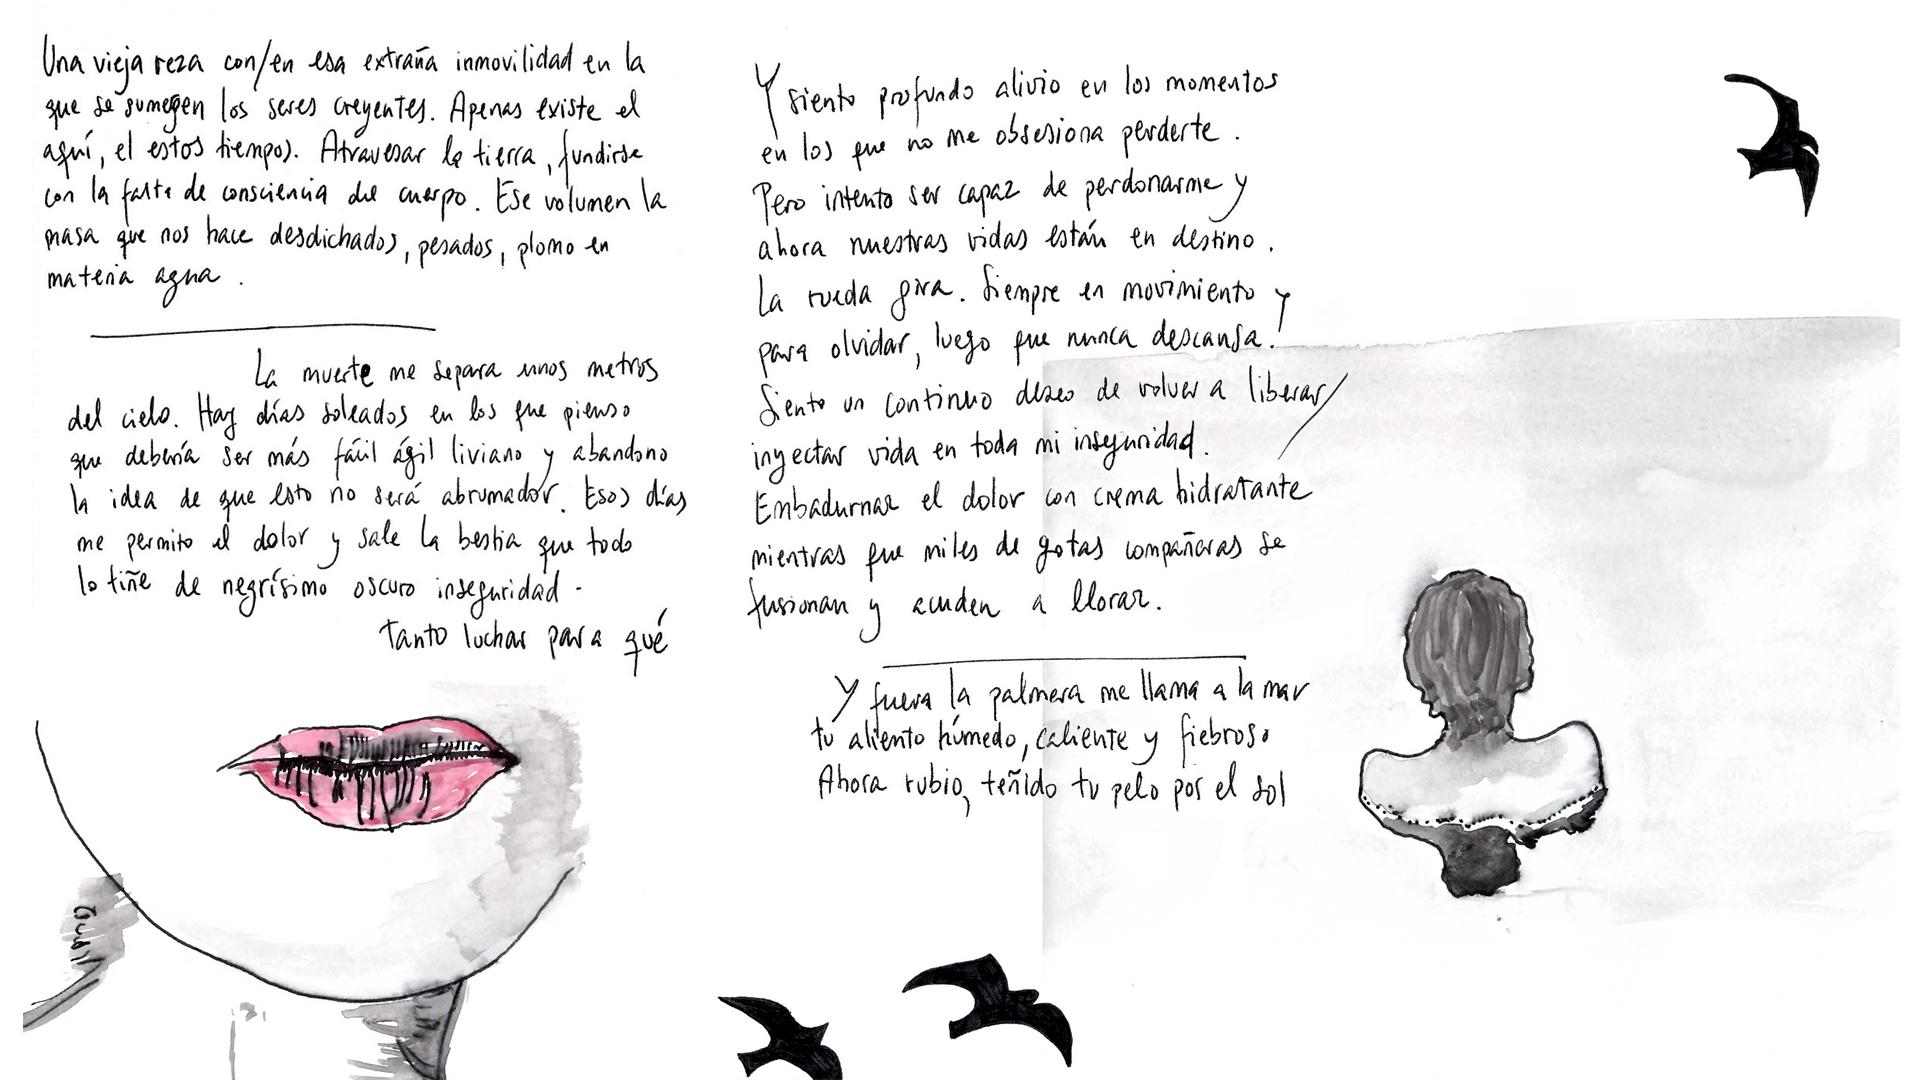 Una vieja reza con/en esa extraña inmovilidad en la
que se sumegen los seres creyentes. Apenas existe el
aquí, el estos tiempos. Atravesar la tierra, fundirse
con la falta de consciencia del cuerpo. Ese volumen la
masa que nos hace desdichados, pesados, plomo en
materia agua.
La muerte me separa unos metros
del cielo. Hay días soleados en los que pienso
que debería ser más fácil ágil liviano y abandono
la idea de que esto no será abrumador. Esos días
me permito el dolor y sale la bestia que todo
lo tiñe de negrísimo oscuro inseguridad.
tanto luchar para qué
Y siento profundo alivio en los momentos
en los que no me obsesiona perderte.
Pero intento ser capaz de perdonarme y
ahora nuestras vidas están en destino.
La rueda gira. Siempre en movimiento y
para olvidar, luego que nunca descansa.
Siento un continuo deseo de volver a liberar/
inyectar vida en toda mi inseguridad.
Embadurnar el dolor con crema hidratante
mientras que miles de gotas compañeras se
fusionan y acuden a llorar.
Y fuera la palmera me llama a la mar
tu aliento húmedo, caliente y fiebroso
Ahora rubio, teñido tu pelo por el sol